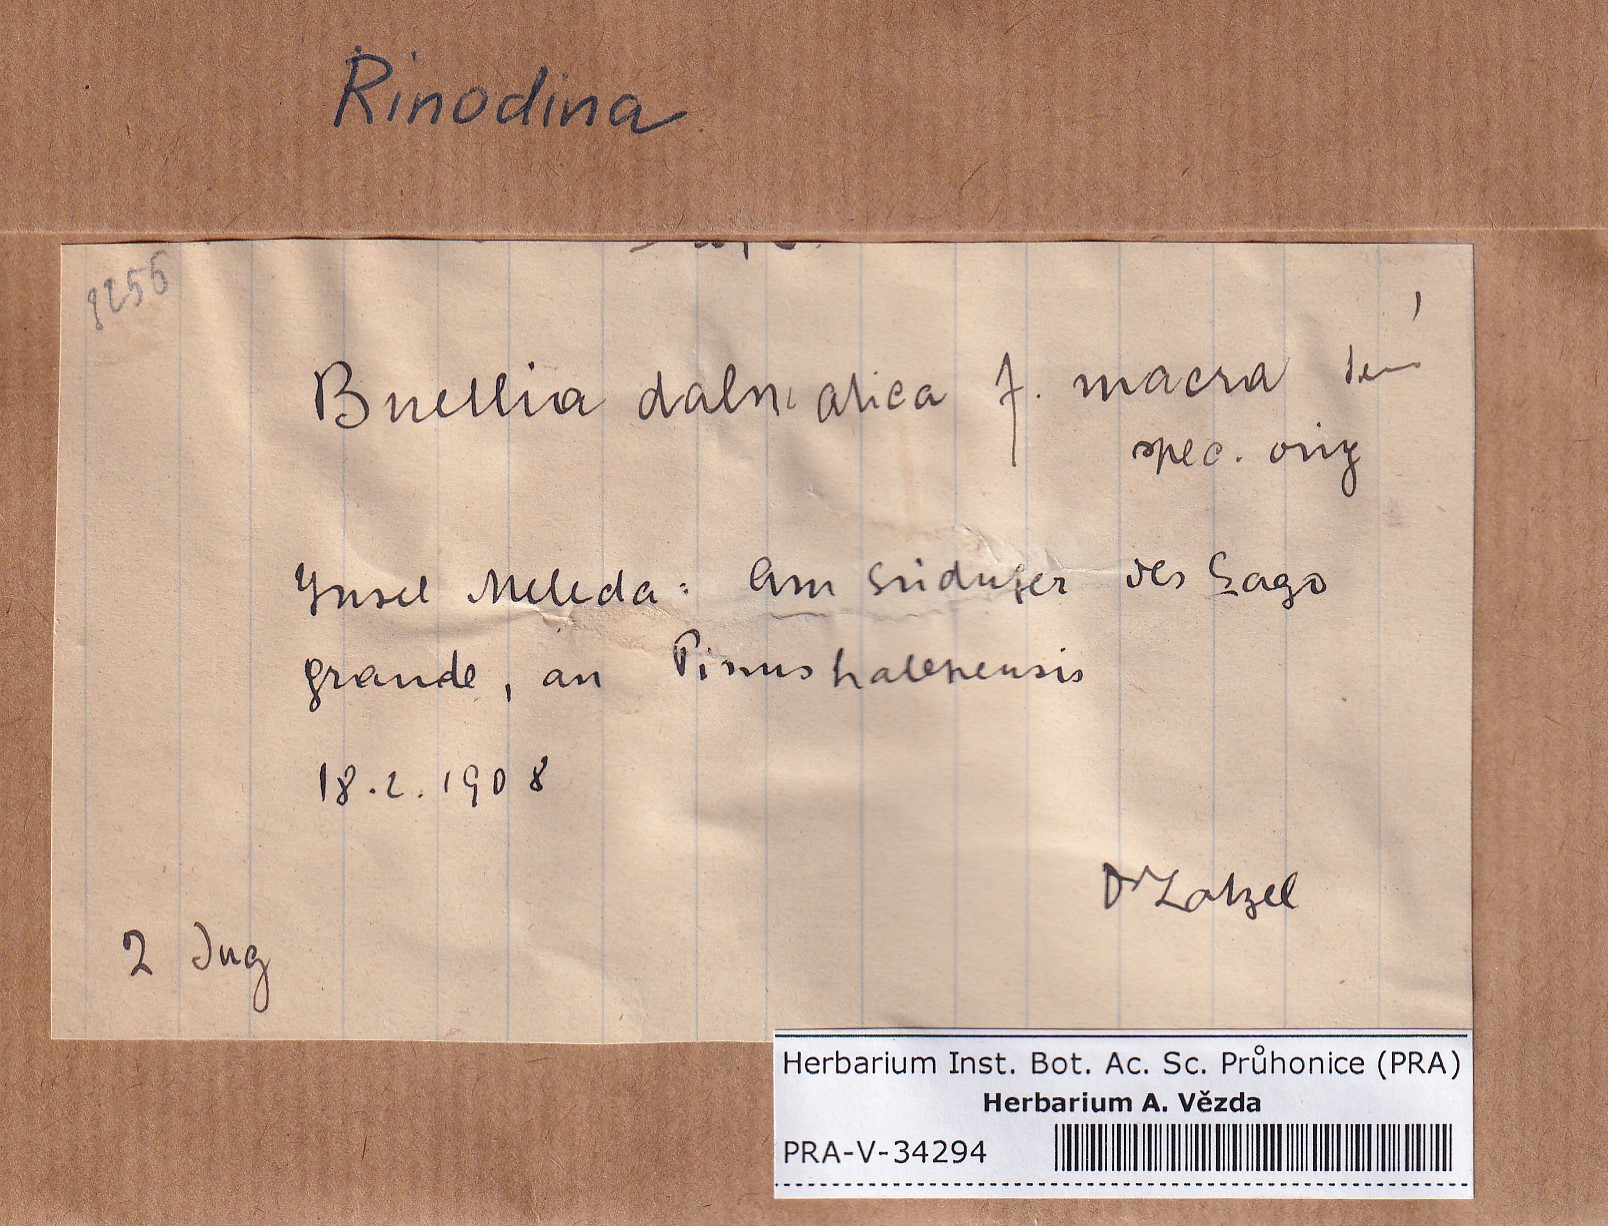 Rinodina
8256
Buellia dalmatica f. macra
spec. orig
Insel Meleda: Am Südufer des Lago
grande, an Pinus halepensis
18.2.1908
Dr Latzel
2 Jug
Herbarium Inst. Bot. Ac. Sc. Průhonice (PRA)
Herbarium A. Vězda
PRA-V-34294